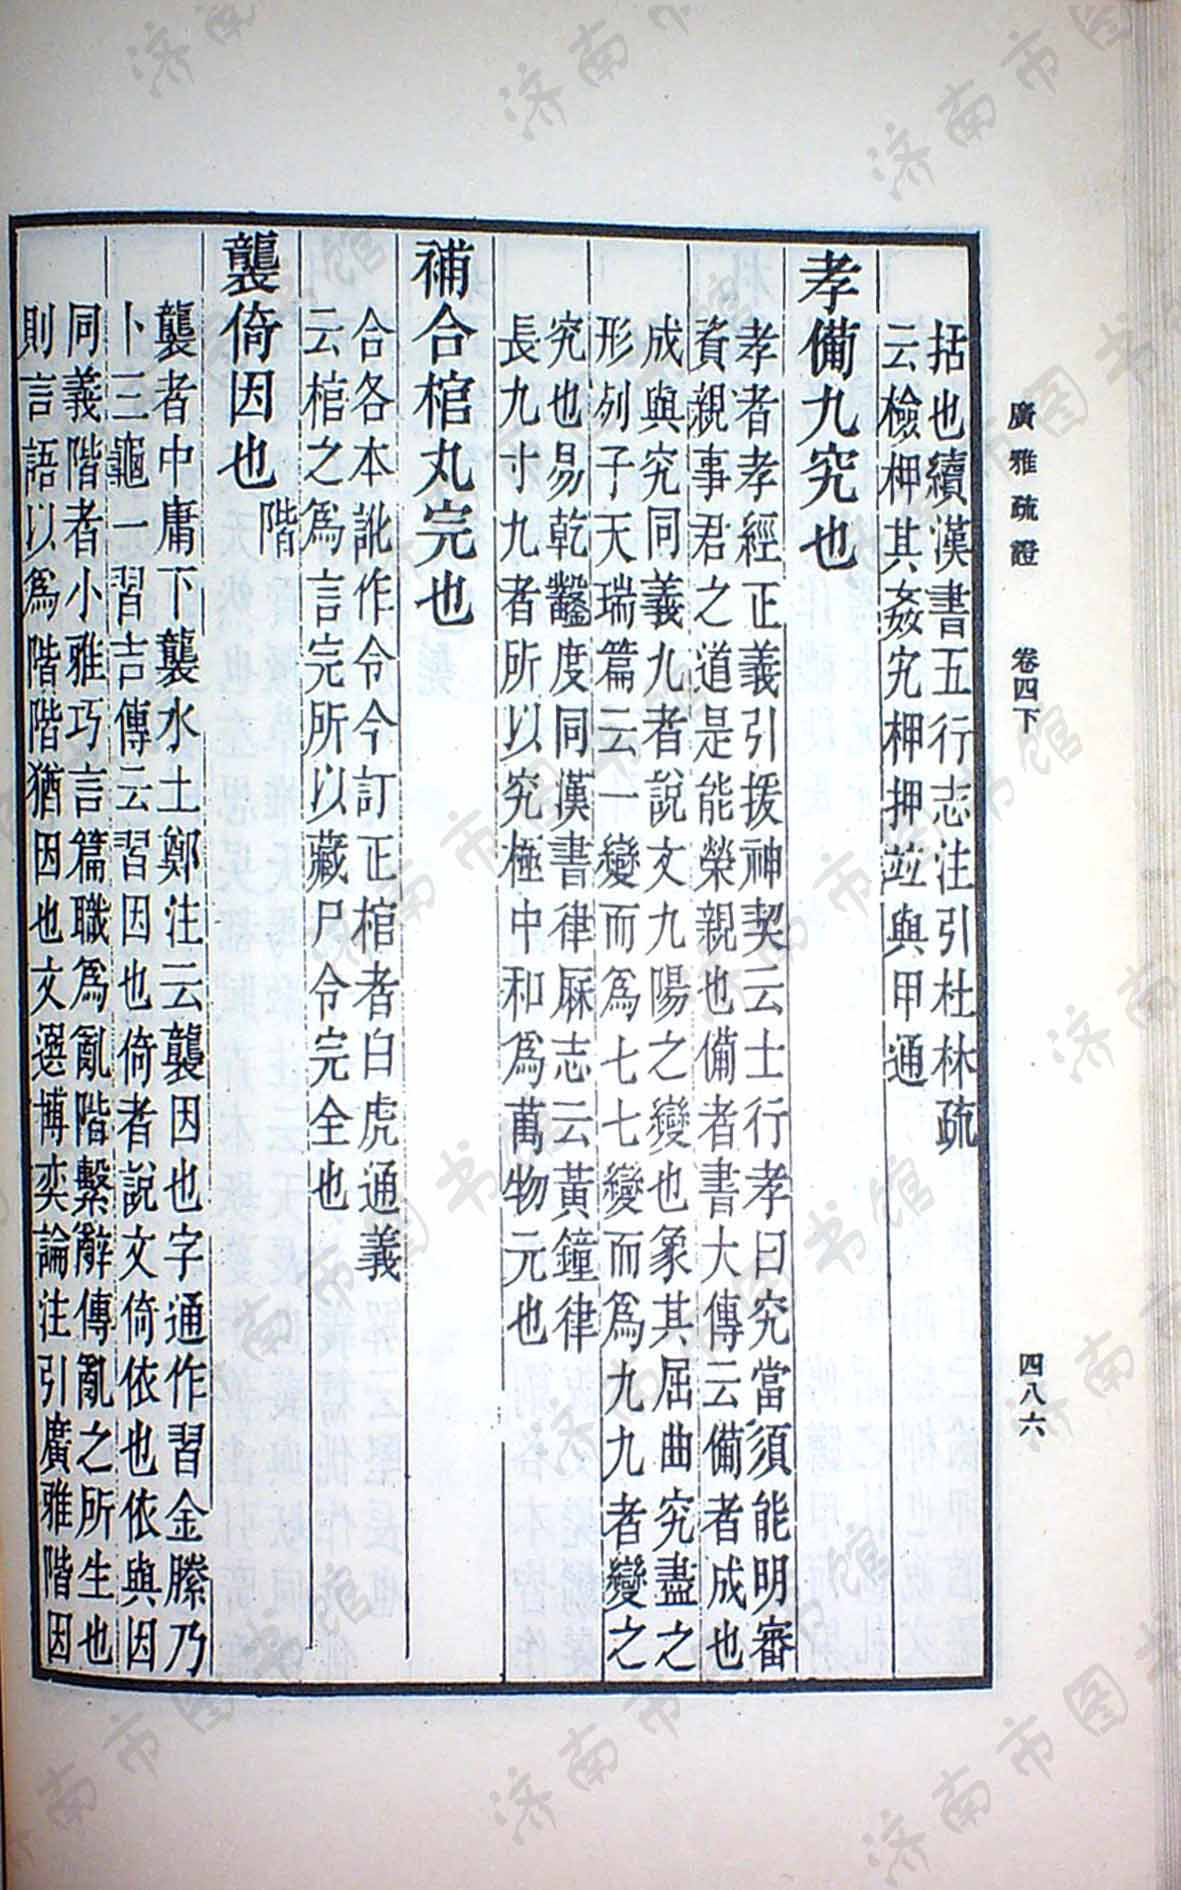 廣雅疏證　卷四下　四八六
括也續漢書五行志注引杜林疏
云檢柙其姦宄柙押竝與甲通
孝備九究也
孝者孝經正義引援神契云士行孝曰究當須能明審
資親事君之道是能榮親也備者書大傳云備者成也
成與究同義九者說文九陽之變也象其屈曲究盡之
形列子天瑞篇云一變而爲七七變而爲九九者變之
究也易乾鑿度同漢書律厤志云黃鐘律
長九寸九者所以究極中和爲萬物元也
補合棺丸完也
合各本訛作令今訂正棺者白虎通義
云棺之爲言完所以藏尸令完全也
襲倚因也
階
襲者中庸下襲水土鄭注云襲因也字通作習金縢乃
卜三龜一習吉傳云習因也倚者說文倚依也依與因
同義階者小雅巧言篇職爲亂階繫辭傳亂之所生也
則言語以爲階階猶因也文選博奕論注引廣雅階因
济南市图书馆